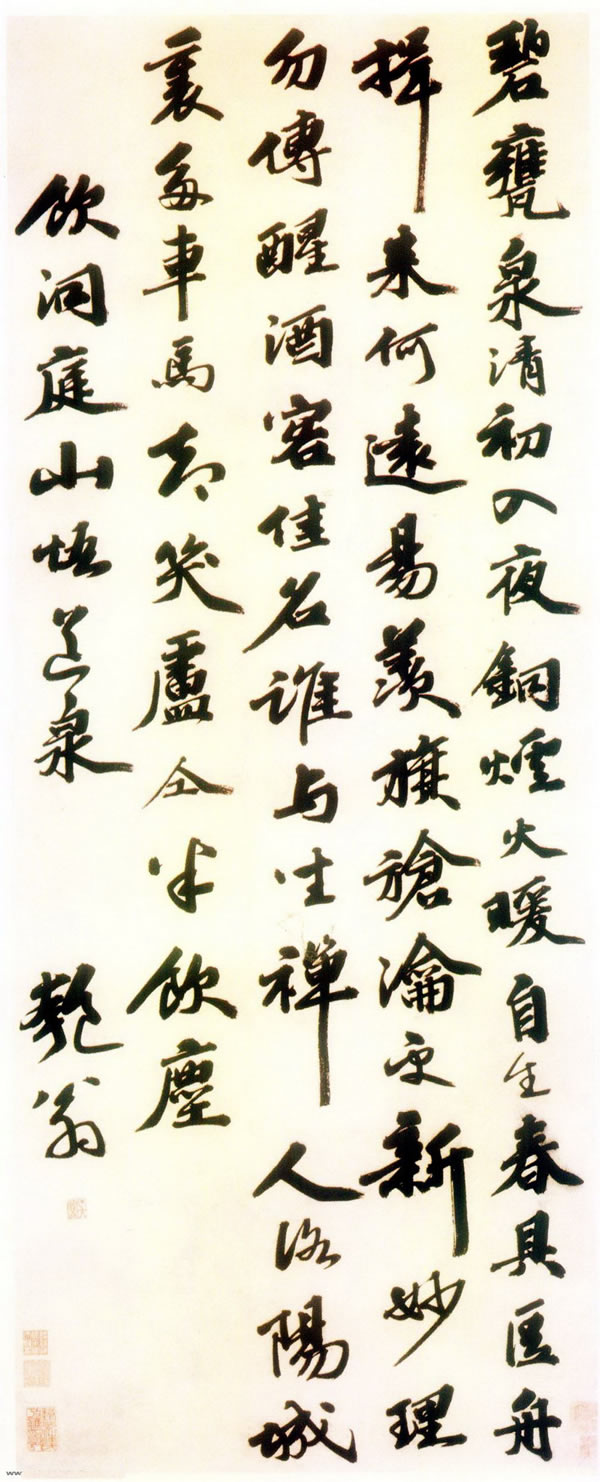 碧甕泉清初入夜銅爐火暖自生春具區舟
楫来何遠昜羨旗槍瀹更新妙理
勿傳醒酒客佳名誰与坐禪人洛陽城
裏多車馬却笑盧仝半飲塵
飲洞庭山悟道泉 匏翁